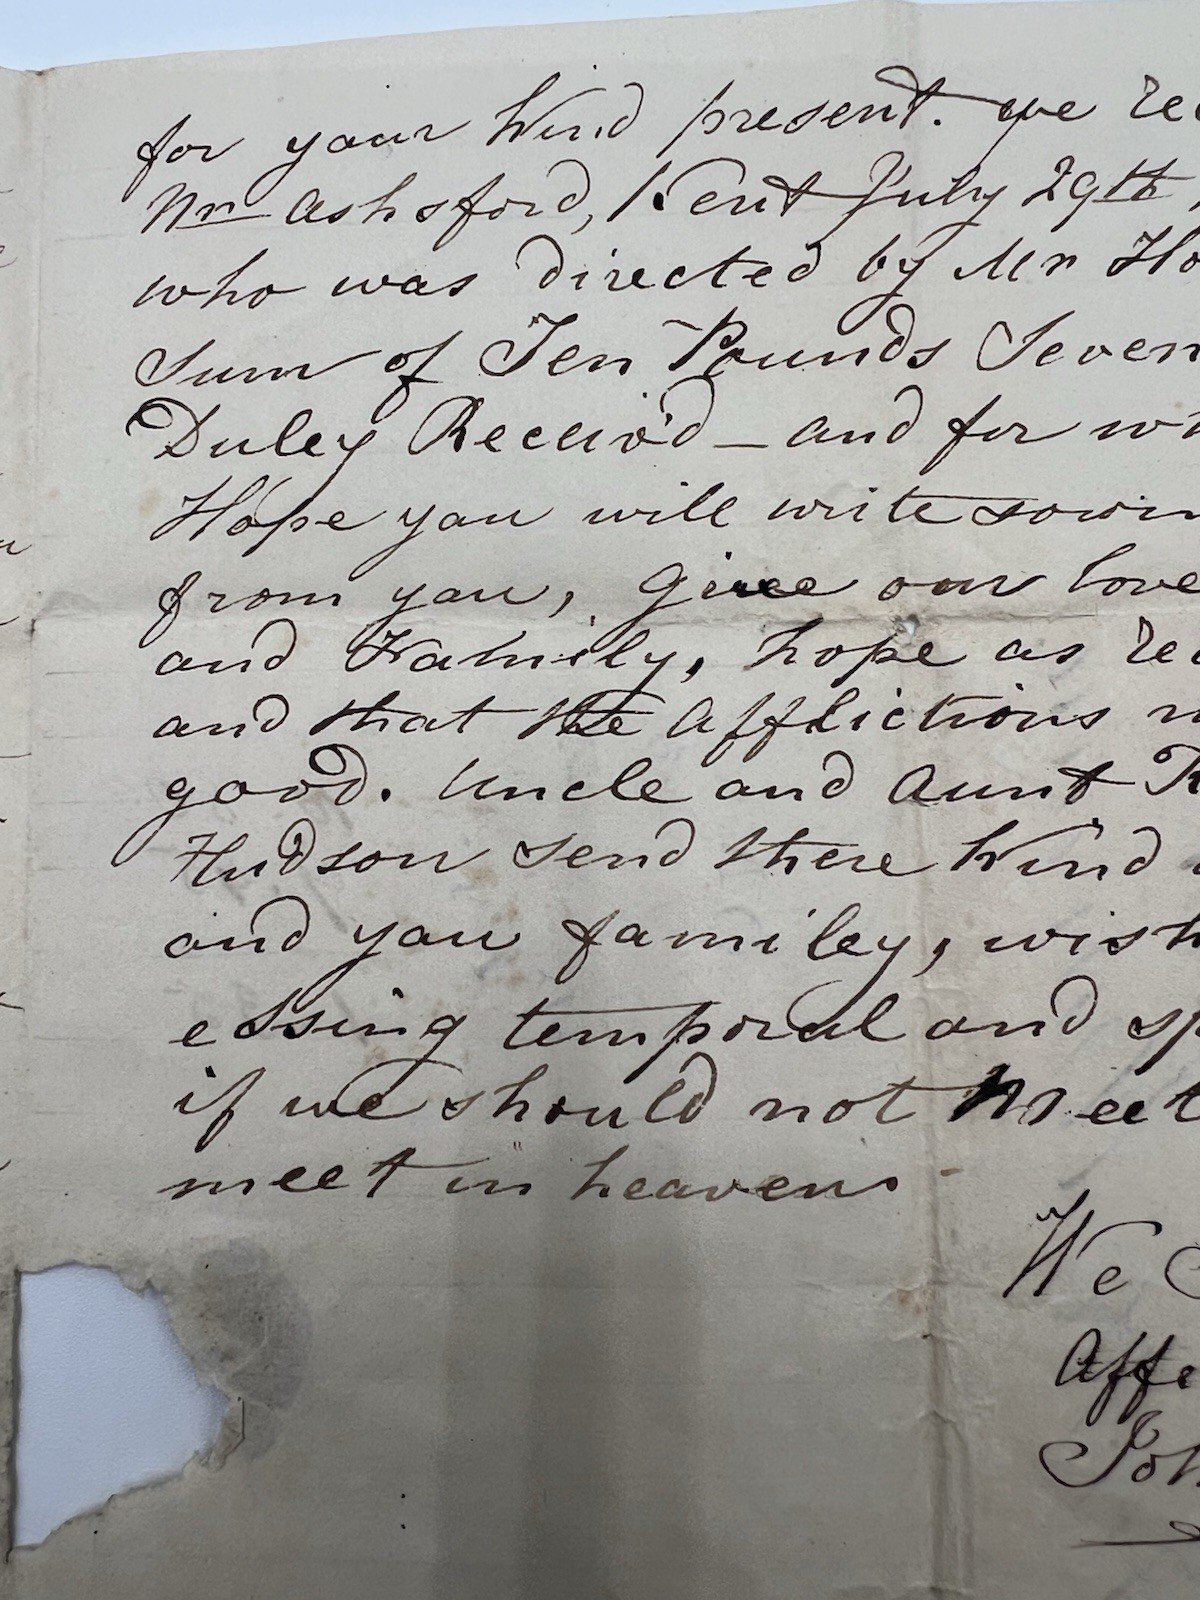 for your kind present. we re
Nr Ashsford, Kent July 29th,
who was directed by Mr Ho
Sum of Ten Pounds Seven
Duley Receiv'd – and for w
Hope you will write
from you, Give our love
and Family, hope as re
and that the Afflictions
good. Uncle and Aunt R
Hudson send there kind
and you familey, wish
essing temporal and sp
if we should not Meet
meet in heaven.
We
Affe
Joh